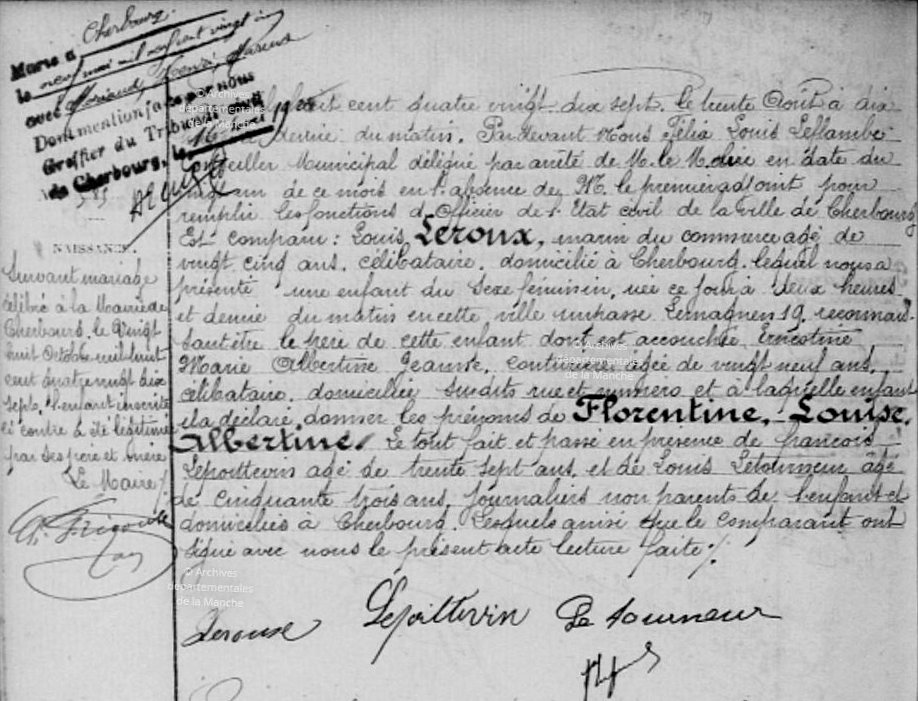 Marié à Cherbourg
le neuf mai mil neuf cent vingt
avec Henri Marcus
Dont mention faite par nous
Greffier du Tribunal civil
de Cherbourg, le 1920
NAISSANCE.
Suivant mariage
célébré à la Mairie de
Cherbourg, le Vingt
huit Octobre mil huit
cent quatre vingt dix
sept, l'enfant inscrite
ci contre a été légitimée
par ses père et mère
Le Maire
huit cent quatre vingt dix sept. Le trente Août à dix
demie du matin. Pardevant Nous Félix Louis Leflambe
Conseiller Municipal délégué par arrêté de M. le Maire en date du
de ce mois en l'absence de M. le premier adjoint pour
remplir les fonctions d'Officier de l'Etat civil de la ville de Cherbourg
Est comparu : Louis Leroux, marin du commerce agé de
vingt cinq ans, célibataire, domicilié à Cherbourg. lequel nous a
présenté une enfant du sexe féminin, née ce jour à deux heures
et demie du matin en cette ville impasse Lemagnen 19, reconnais-
sant être le père de cette enfant dont est accouchée Ernestine
Marie Albertine Jeanne, couturière agée de vingt neuf ans,
célibataire, domiciliée susdits rue et numéro et à laquelle enfant
il a déclaré donner les prénoms de Florentine, Louise,
Albertine. Le tout fait et passé en présence de François
Lepoittevin agé de trente sept ans, et de Louis Letourneur âgé
de cinquante trois ans, journaliers non parents de l'enfant et
domiciliés à Cherbourg, Lesquels ainsi que le comparant ont
signé avec nous le présent acte lecture faite ./.
Leroux Lepoittevin Le tourneur
© Archives
départementales
de la Manche
© Archives
départementales
de la Manche
© Archives
départementales
de la Manche